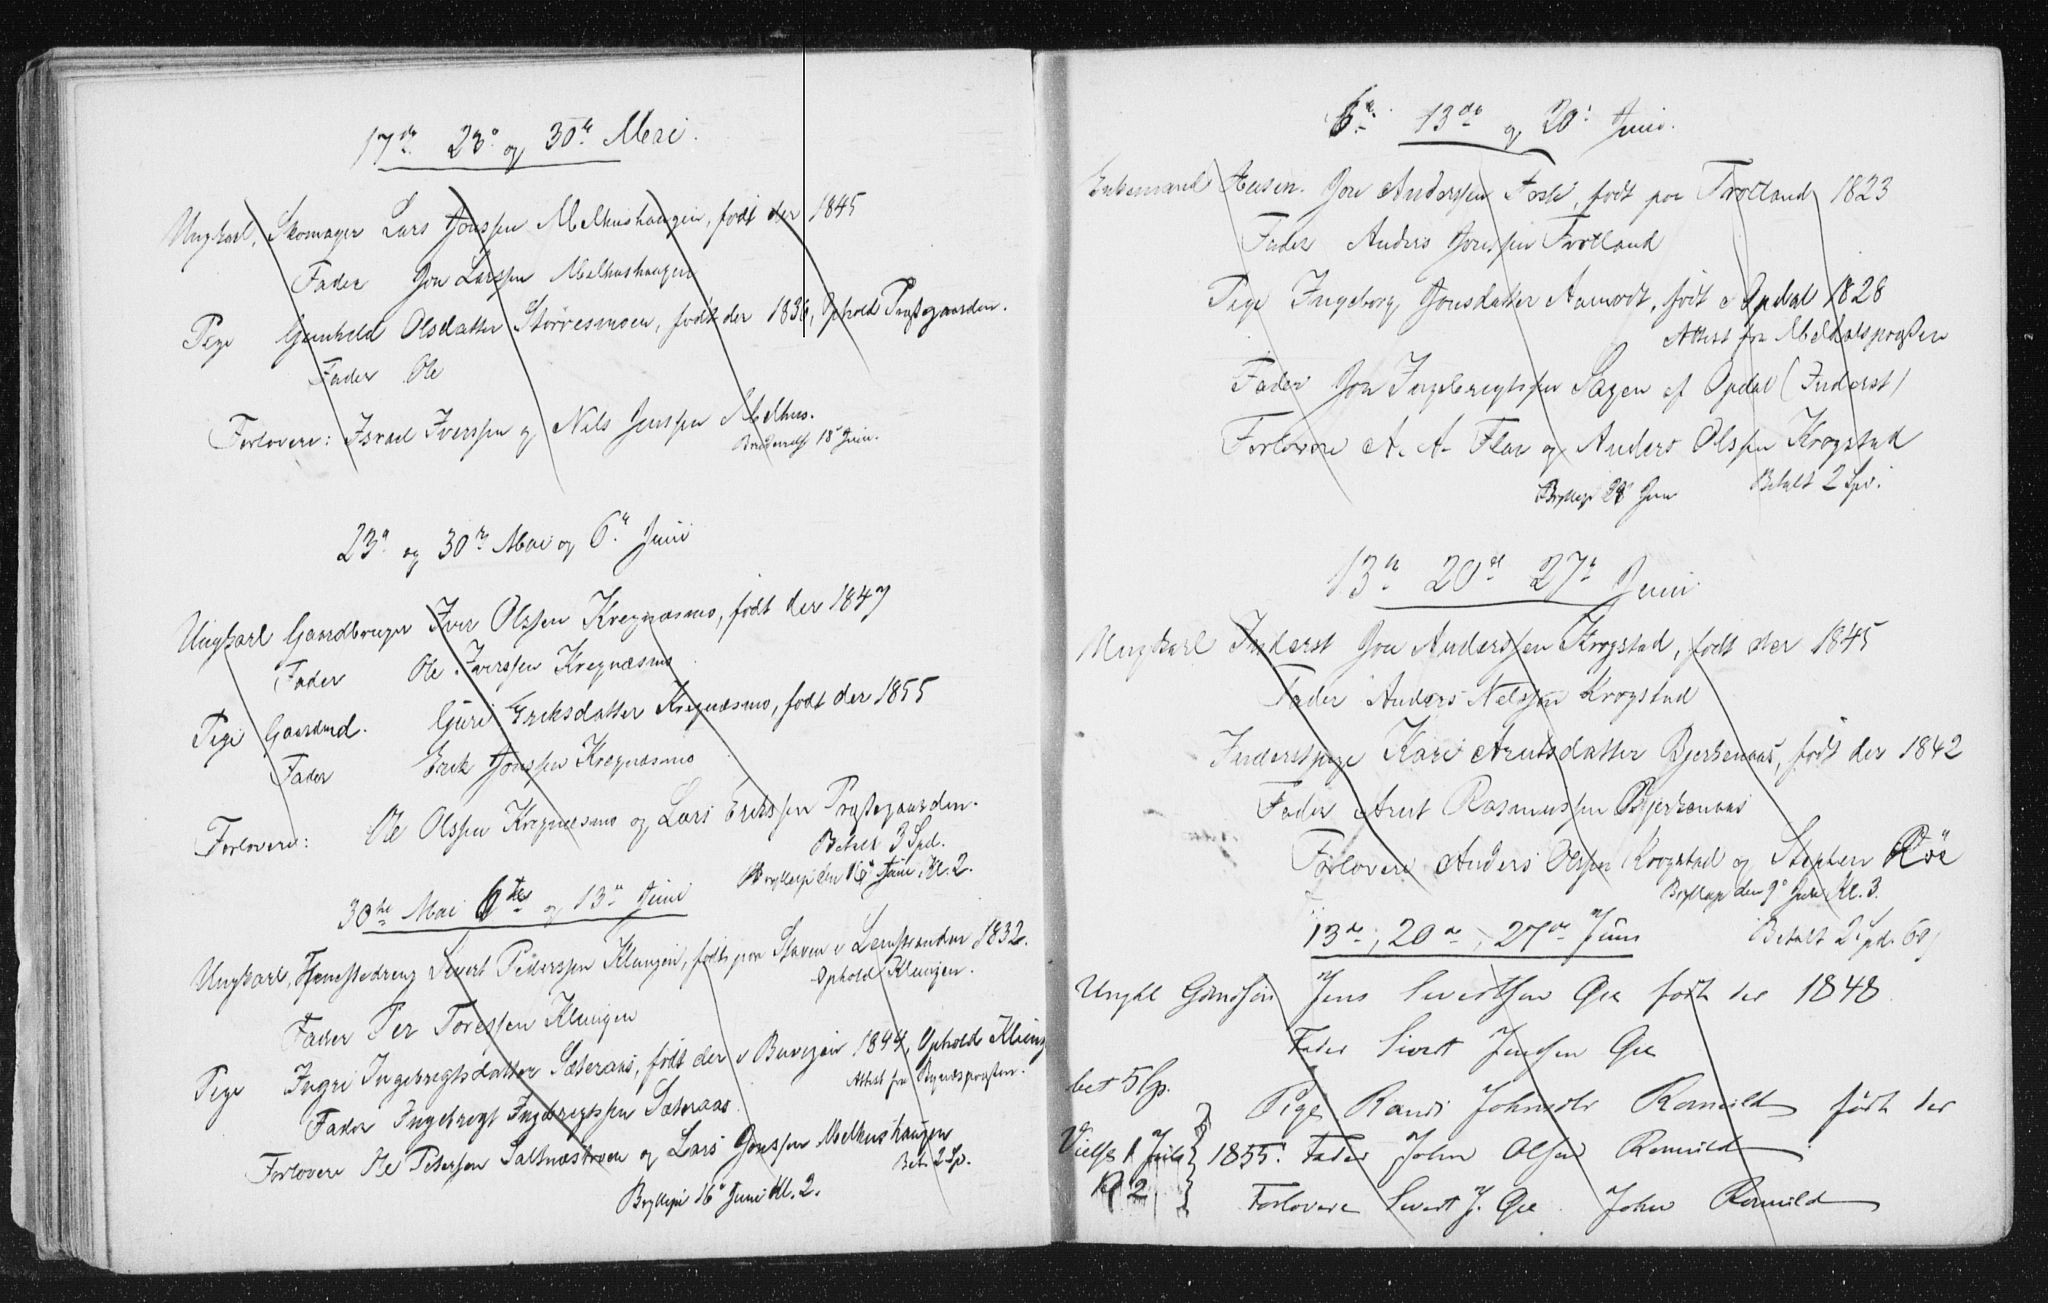 17de 23de og 30te Mai.
Ungkarl, Skomager Lars Jonssen Melhushaugen, født der 1845
Fader Jon Larssen Melhushaugen
Pige Gunhild Olsdatter Størvesmoen, født der 1836, Ophold Præstegaarden.
Fader Ole
Forlovere: Israel Iverssen og Nils Jenssen Melhus.
18de Juni.
23de og 30te Mai og 6te Juni
Ungkarl Gaardbruger Iver Olssen Kregnæsmo, født der 1847
Fader Ole Iverssen Kregnæsmo
Pige Gaardmd. Guri Eriksdatter Kregnæsmo, født der 1855
Fader Erik Jonssen Kregnæsmo
Forlovere: Ole Olssen Kregnæsmo og Lars Erikssen Præstegaarden.
Betalt 3 Spd.
Bryllup den 16de Juni Kl. 2.
30te Mai 6te og 13de Juni
Ungkarl, Sivert Pederssen Klungen, født paa Staven i Lensstranden 1832.
Ophold Klungen.
Fader Per Toressen Klungen
Pige Ingri Ingebregtsdatter Sæteraas, født der i Buvigen 1844, Ophold Klung
Attest fra Bynæspræsten.
Fader Ingebregt Ingebregtssen Sæteraas.
Forlovere Ole Petersen Saltnæs og Lars Jonssen Melhushaugen
Bet. 2 Sp.
Bryllup 16de Juni Kl. 2.
6te 13de og 20de Juni.
Enkemand Husm. Jon Anderssen Foss, født paa Trotland 1823
Fader Anders Jonssen Trotland
Pige Ingeborg Jonsdatter Aamodt, født i Opdal 1828
Attest fra Meldalspræsten
Fader Jon Ingebregtssen Sagen af Opdal (Inderst)
Forlovere A. A. Flaa og Anders Olssen Krogstad
Bryllup 28 Juni Betalt 2 Spd.
13de 20de 27de Juni
Ungkarl Inderst Jon Anderssen Krogstad, født der 1845
Fader Anders Nelssen Krogstad
Inderstpige Kari Arntsdatter Bjerkenaas, født der 1842
Fader Arnt Rasmussen Bjerkenaas
Forlovere Anders Olssen Krogstad og Steffen Röe
Bryllup den 9de Kl. 3.
13de, 20de, 27de Juni Betalt 2 Spd.
Ungkl Gaardsøn Jens Sivertsen Gee født der 1848
Fader Sivert Jenssen Gee
bet 5 Sp.
Pige Randi Johnsdtr Romuld født der
Vielse 1 Juli 1855. Fader John Olsen Romuld
Kl 2
Forlovere Sivert J. Gee John Romuld